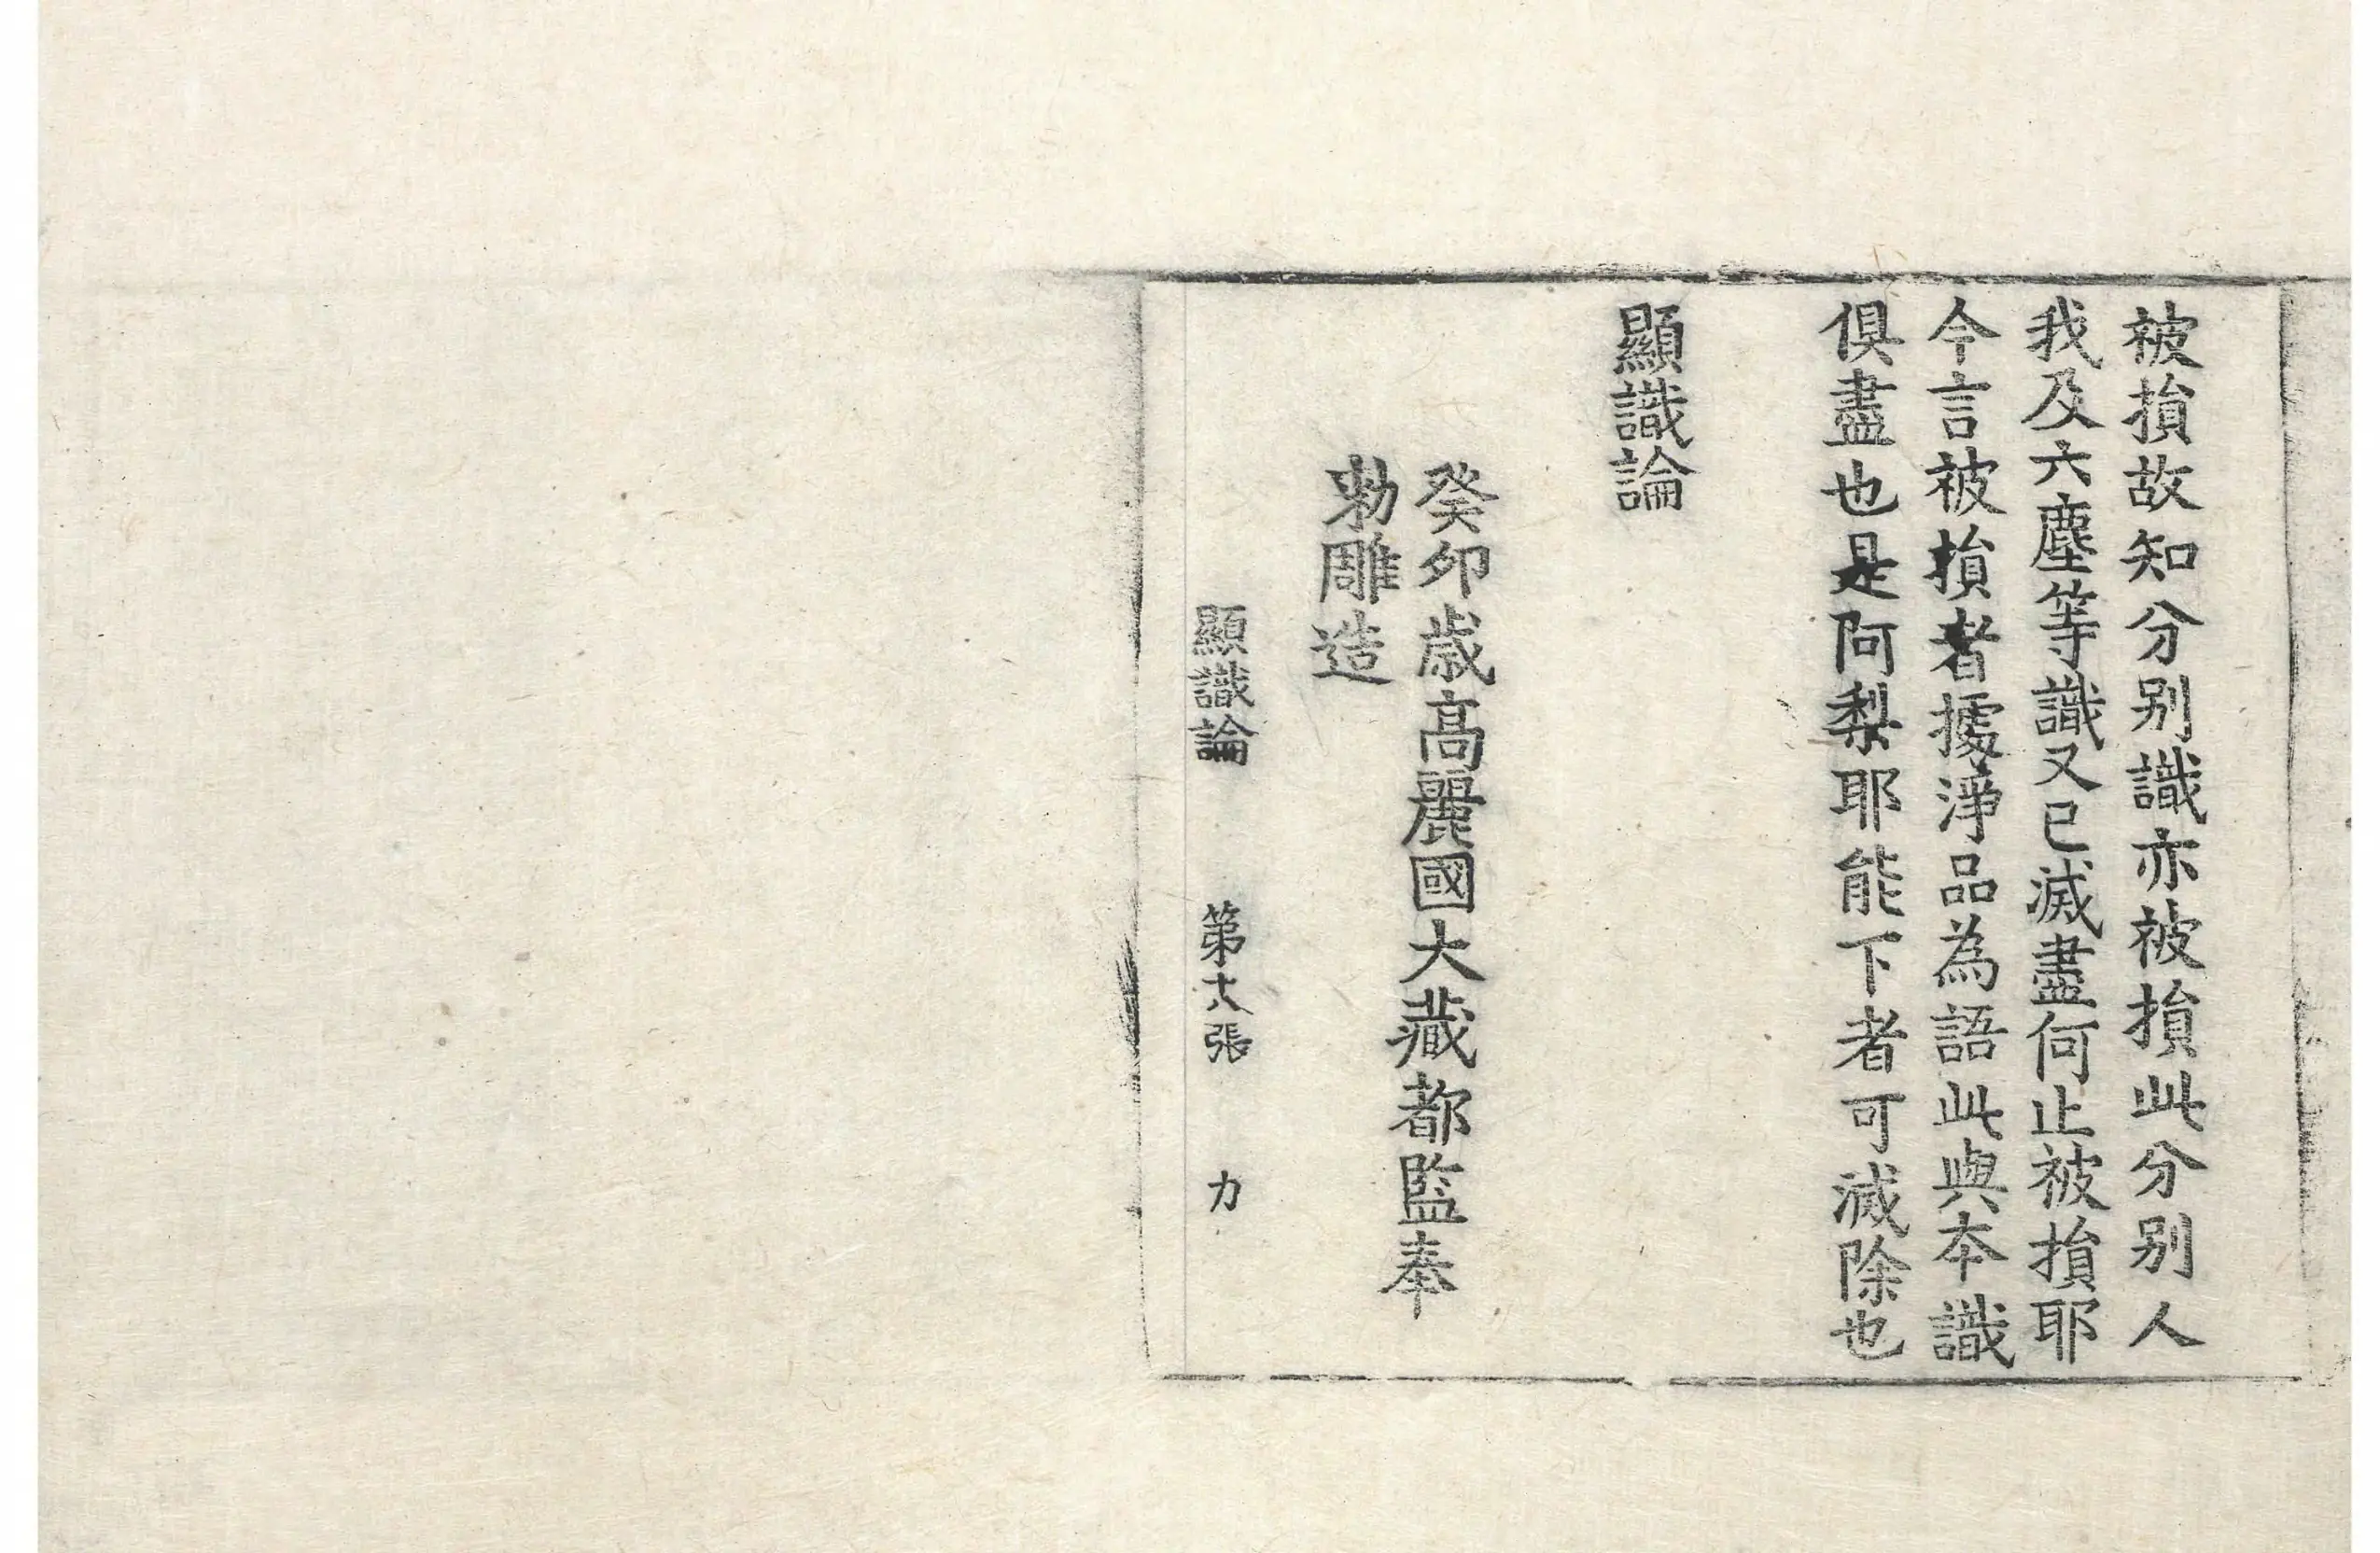 被損故知分別識亦被損此分別人
我及六塵等識又已滅盡何止被損耶
今言被損者據淨品為語此與本識
俱盡也是阿梨耶能下者可滅除也
顯識論
癸卯歲高麗國大藏都監奉
勑雕造
顯識論 第十八張 力